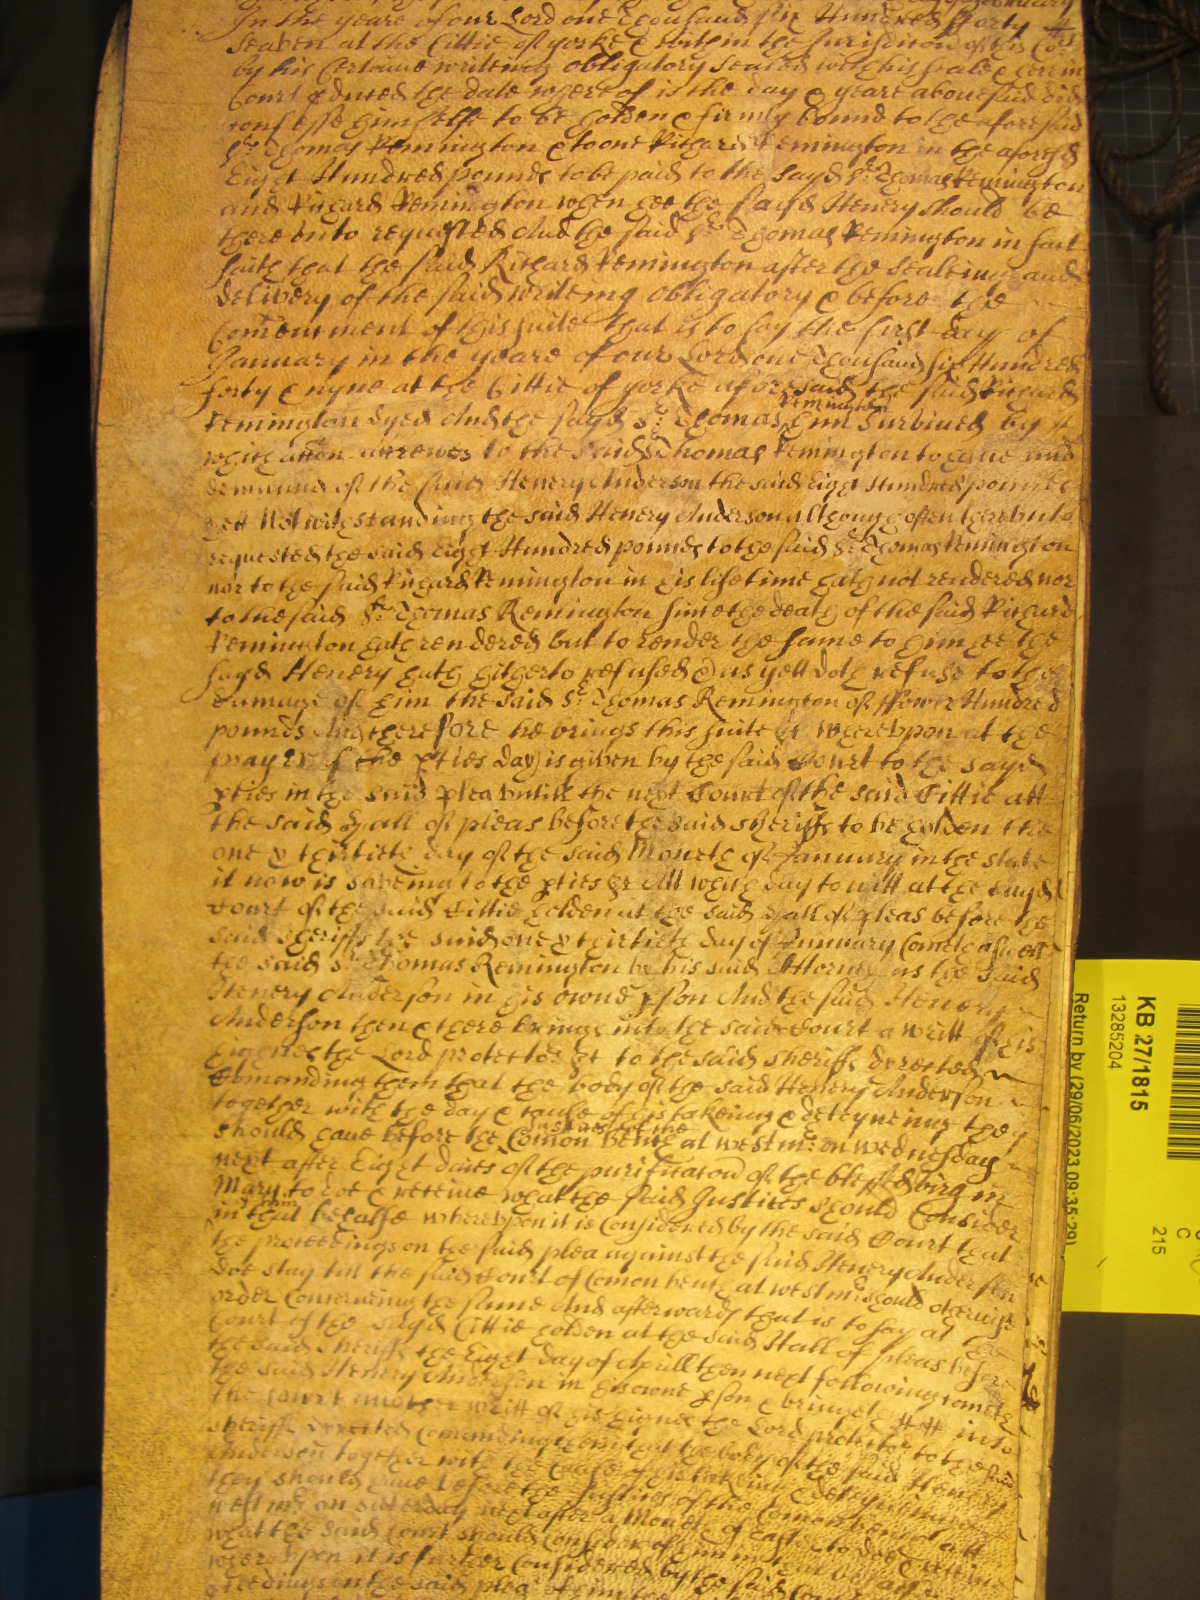 In the yeare of our Lord one Thousand six Hundred fforty
seaven at the Cittie of yorke & within the Jurisdiccon of this Court
by his Certaine writeing obligatory sealed with his seale & here in
Court & dated the date whereof is the day & yeare abovesaid did
confesse himselfe to be holden & firmly bound to the aforesaid
Sr. Thomas Remington & to one Richard Remington in the aforesd
Eight Hundred pounds to be paid to the sayd Sr. Thomas Remington
and Richard Remington when hee the sayd Henery should be
thereunto requested And the said Sr. Thomas Remington in fact
saith that the said Richard Remington after the sealeing and
delivery of the said writeing obligatory & before the
Comencment of this suite that is to say the first day of
January in the yeare of our Lord one Thousand six Hundred
forty & nyne at the Cittie of yorke aforesaid the said Richard
Remington dyed And the sayd Sr. Thomas Remington him survived by
which accon accrewes to the said Thomas Remington to have and
demaund of the said Henery Anderson the said Eight Hundred pounds
yett Notwithstanding the said Henery Anderson although often thereunto
requested the said Eight Hundred pounds to the said Sr. Thomas Remington
nor to the said Richard Remington in his life time hath not rendered nor
to the said Sr. Thomas Remington since the death of the said Richard
Remington hath rendered but to render the same to him hee the
sayd Henery hath hitherto refused & as yett doth refuse to the
damage of him the said Sr. Thomas Remington of ffower Hundred
pounds And therefore he brings this suite &c whereupon at the
prayer of the pties day is given by the said Court to the sayd
pties in the said plea untill the next Court of the said Cittie att
the said Hall of pleas before the said sheriffs to be holden the
one & thirtieth day of the said Moneth of January in the state
it now is saveing to the pties &c Att which day to witt at the sayd
Court of the said Cittie holden at the said Hall of pleas before the
said sheriffs the said one & thirtieth day of January Cometh aswell
the said Sr. Thomas Remington by his said Attorney as the said
Henery Anderson in his owne pson And the said Henery
Anderson then & there brings into the said Court a writt of his
Highnes the Lord protector &c to the said sheriffs directed
Comanding them that the body of the said Henery Anderson
together with the day & cause of his takeing & deteyneing they
should have before the Justices of the Comon bench at westmr. on wednesday
next after Eight daies of the purificacon of the blessed virgin
Mary to doe & receive what the said Justices should Consider
of him in that behalfe whereupon it is Considered by the said Court that
the proceedings on the said plea against the said Henery Anderson
doe stay till the said Court of Comon bench at westmr. should otherwise
order Concerning the same And afterwards that is to say at the
Court of the sayd Cittie holden at the said Hall of pleas before
the said sheriffs the Eight day of Aprill then next following cometh
the said Henery Anderson in his owne pson & bringeth into
the Court another writt of his Highnes the Lord protector to the said
sheriffs directed Comanding them that the body of the said Henery
Anderson together with the cause of his takeing & deteyneing
they should have before the Justices of the Comon bench att
westmr. on saterday next after a Moneth of Easter to doe & receive
what the said Court should consider of him in that behalfe
whereupon it is further Considered by the said Court
proceedings on the said plea
KB 27/1815
13285204
Return by (29/06/2023 09:35:29)
215
C